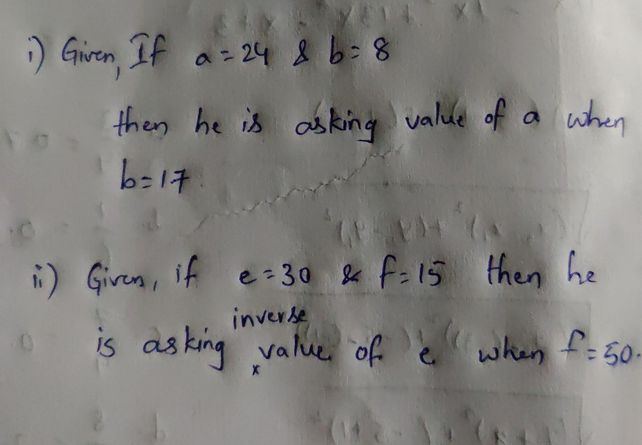 i) Given, If a = 24 & b = 8
then he is asking value of a when
b = 17.
ii) Given, if e = 30 & f = 15 then he
inverse
is asking x value of e when f = 50.